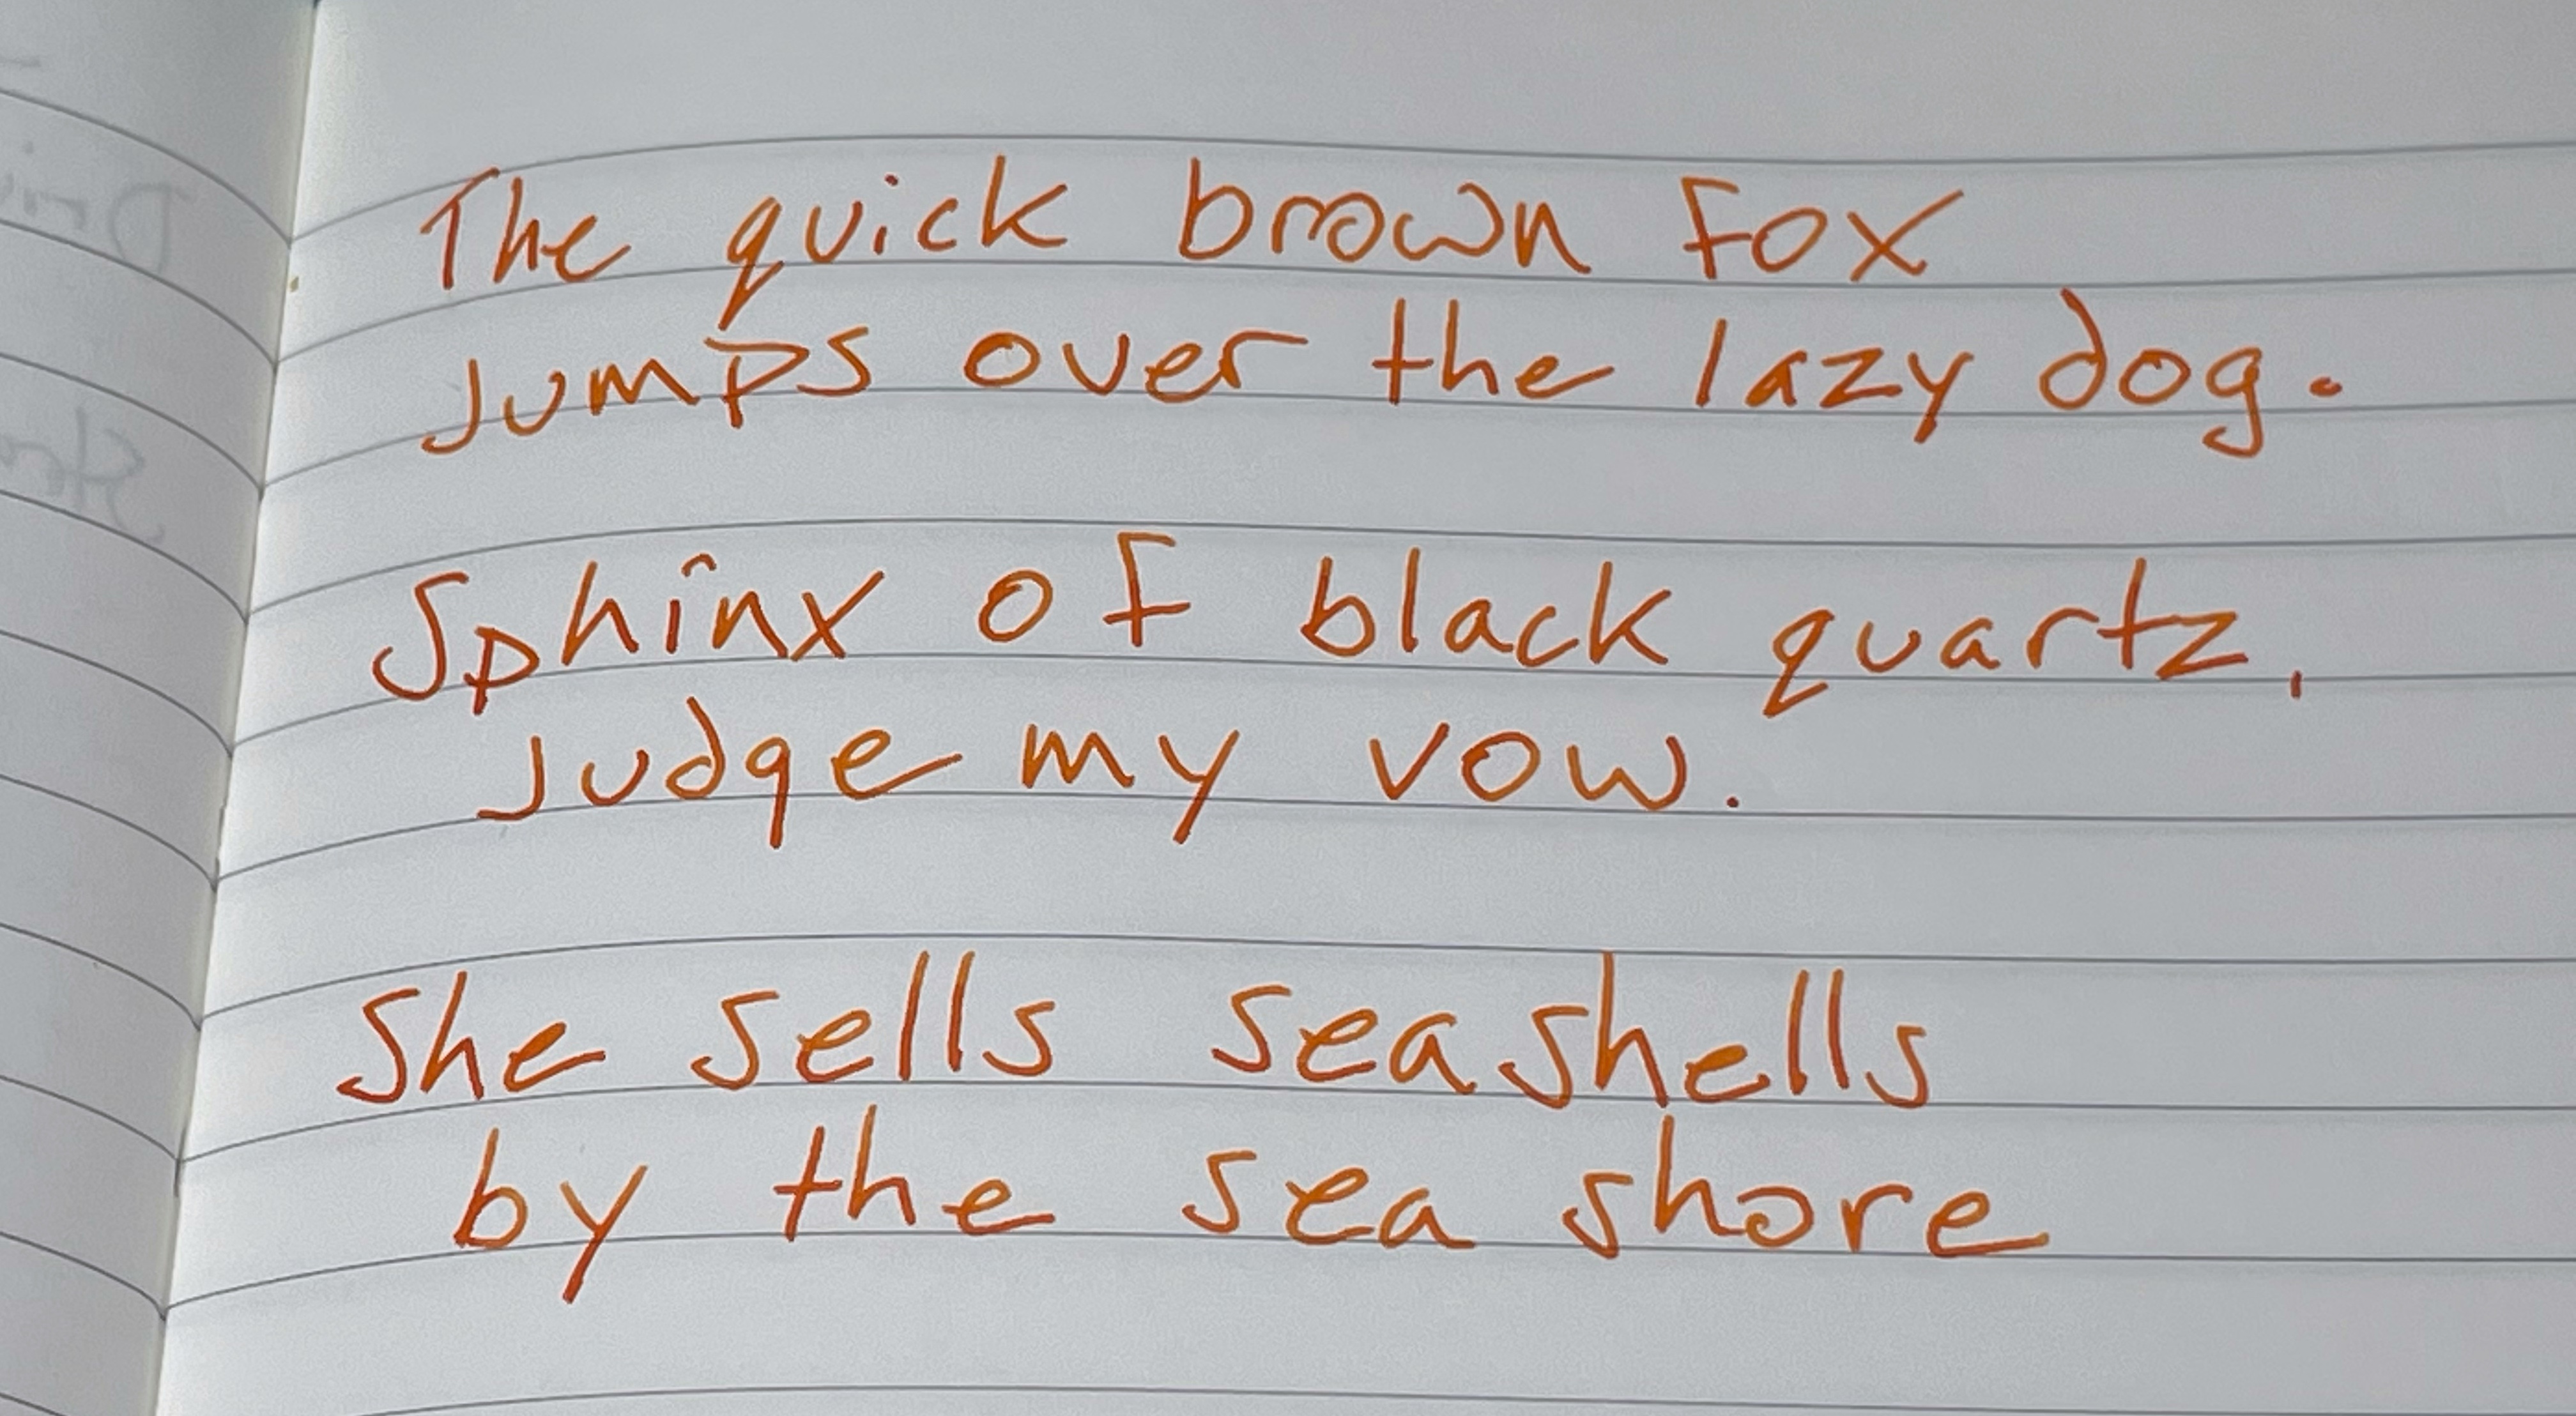 The quick brown fox
jumps over the lazy dog.
Sphinx of black quartz,
judge my vow.
She sells seashells
by the sea shore